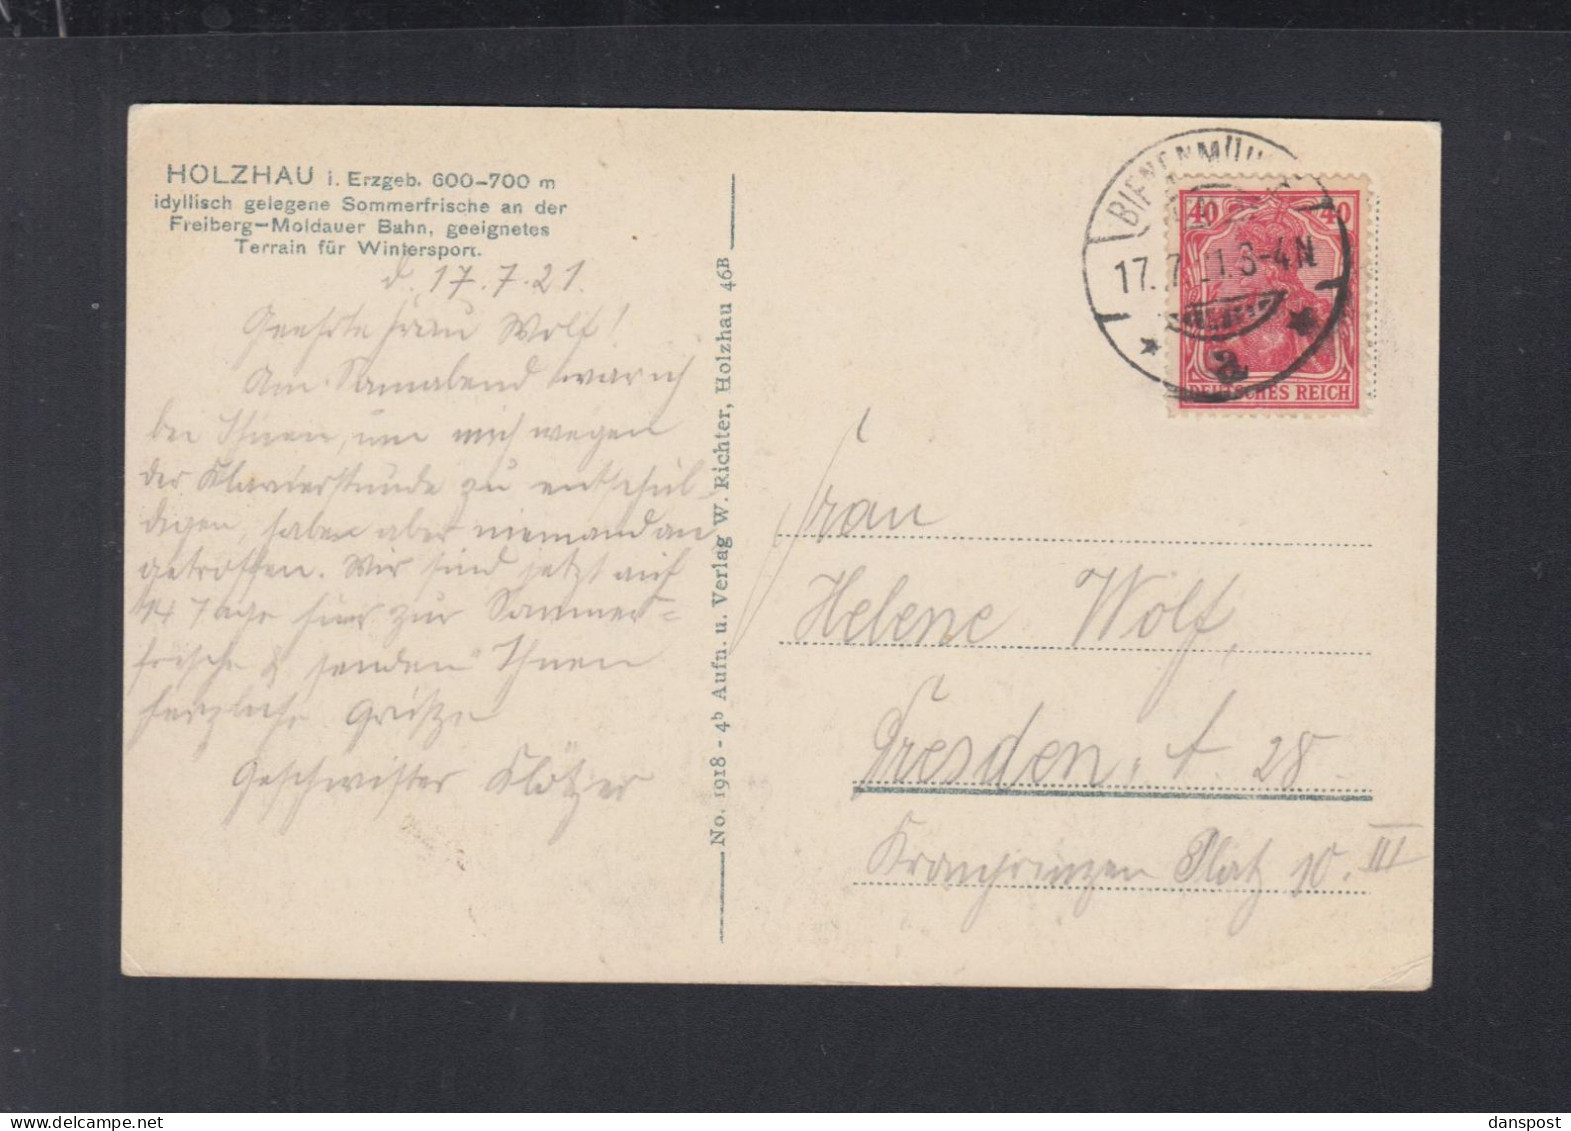 HOLZHAU i. Erzgeb. 600-700 m
idyllisch gelegene Sommerfrische an der
Freiberg-Moldauer Bahn, geeignetes
Terrain für Wintersport.
d. 17.7.21.
Geehrte Frau Wolf!
Am Sonnabend war ich
bei Ihnen, um mich wegen
der Klavierstunde zu entschul-
digen, haben aber niemand an
getroffen. Wir sind jetzt auf
14 Tage hier zur Sommer=
frische & senden Ihnen
herzliche Grüße
Geschwister Klötzer
No. 1918 - 4b Aufn. u. Verlag W. Richter, Holzhau 46B
BIENENMÜH
17.7.21.3-4N
a
40 40
DEUTSCHES REICH
Frau
Helene Wolf,
Dresden, A. 28.
Kronprinzen Platz 10. III
danspost